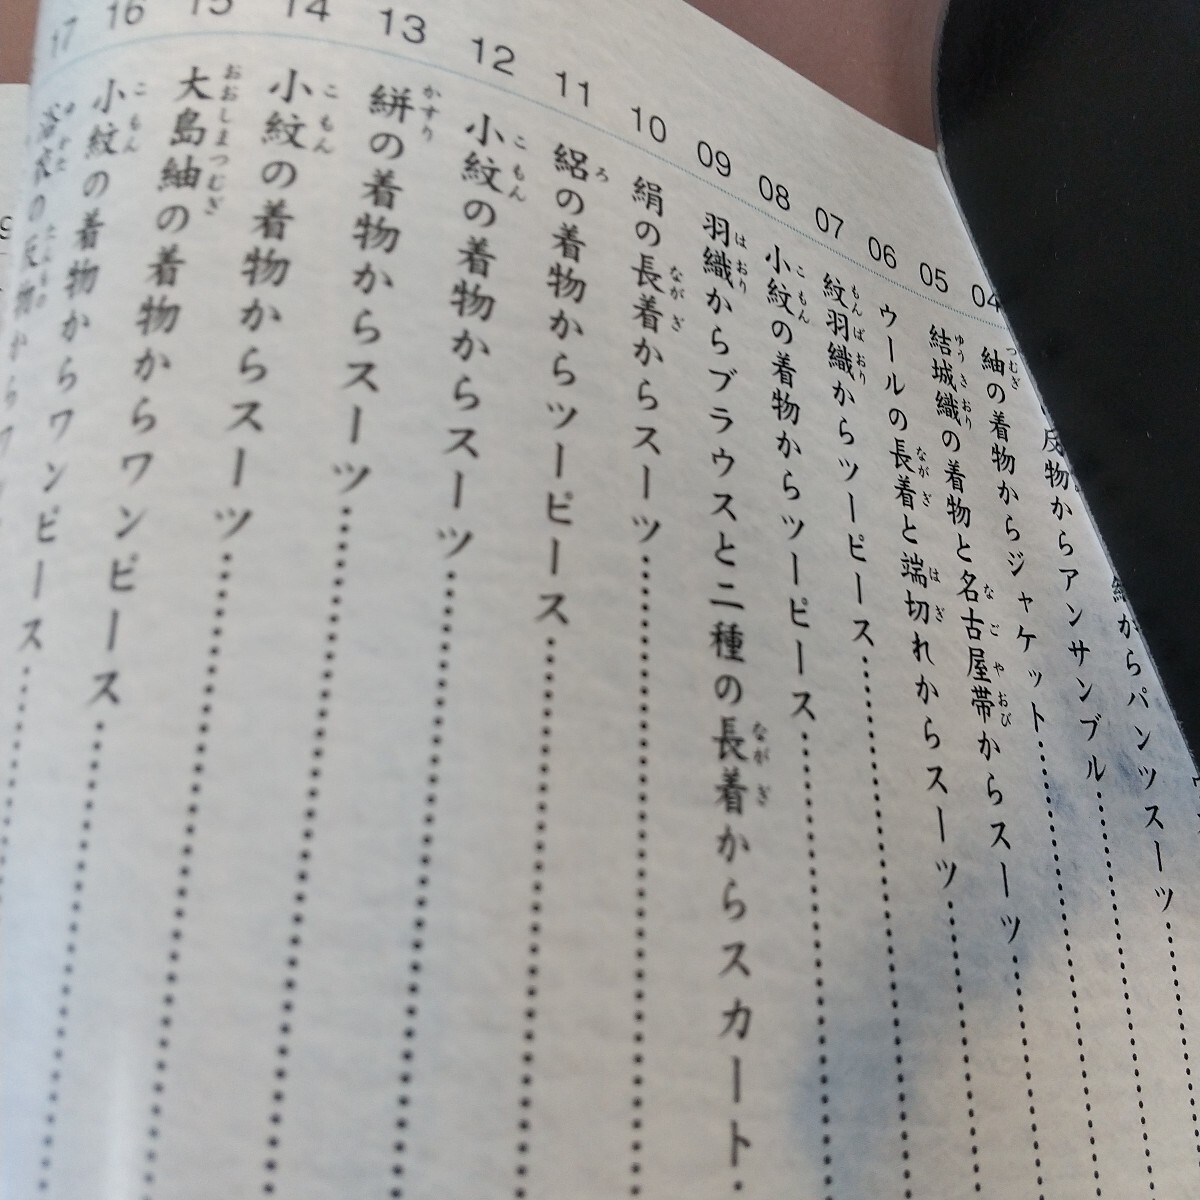 からパンツスーツ
反物からアンサンブル
04 紬の着物からジャケット
05 結城織の着物と名古屋帯からスーツ
06 ウールの長着と端切れからスーツ
07 紋羽織からツーピース
08 小紋の着物からツーピース
09 羽織からブラウスと二種の長着からスカート
10 絹の長着からスーツ
11 絽の着物からツーピース
12 小紋の着物からスーツ
13 絣の着物からスーツ
14 小紋の着物からスーツ
15 大島紬の着物からワンピース
16 小紋の着物からワンピース
17 浴衣の反物から